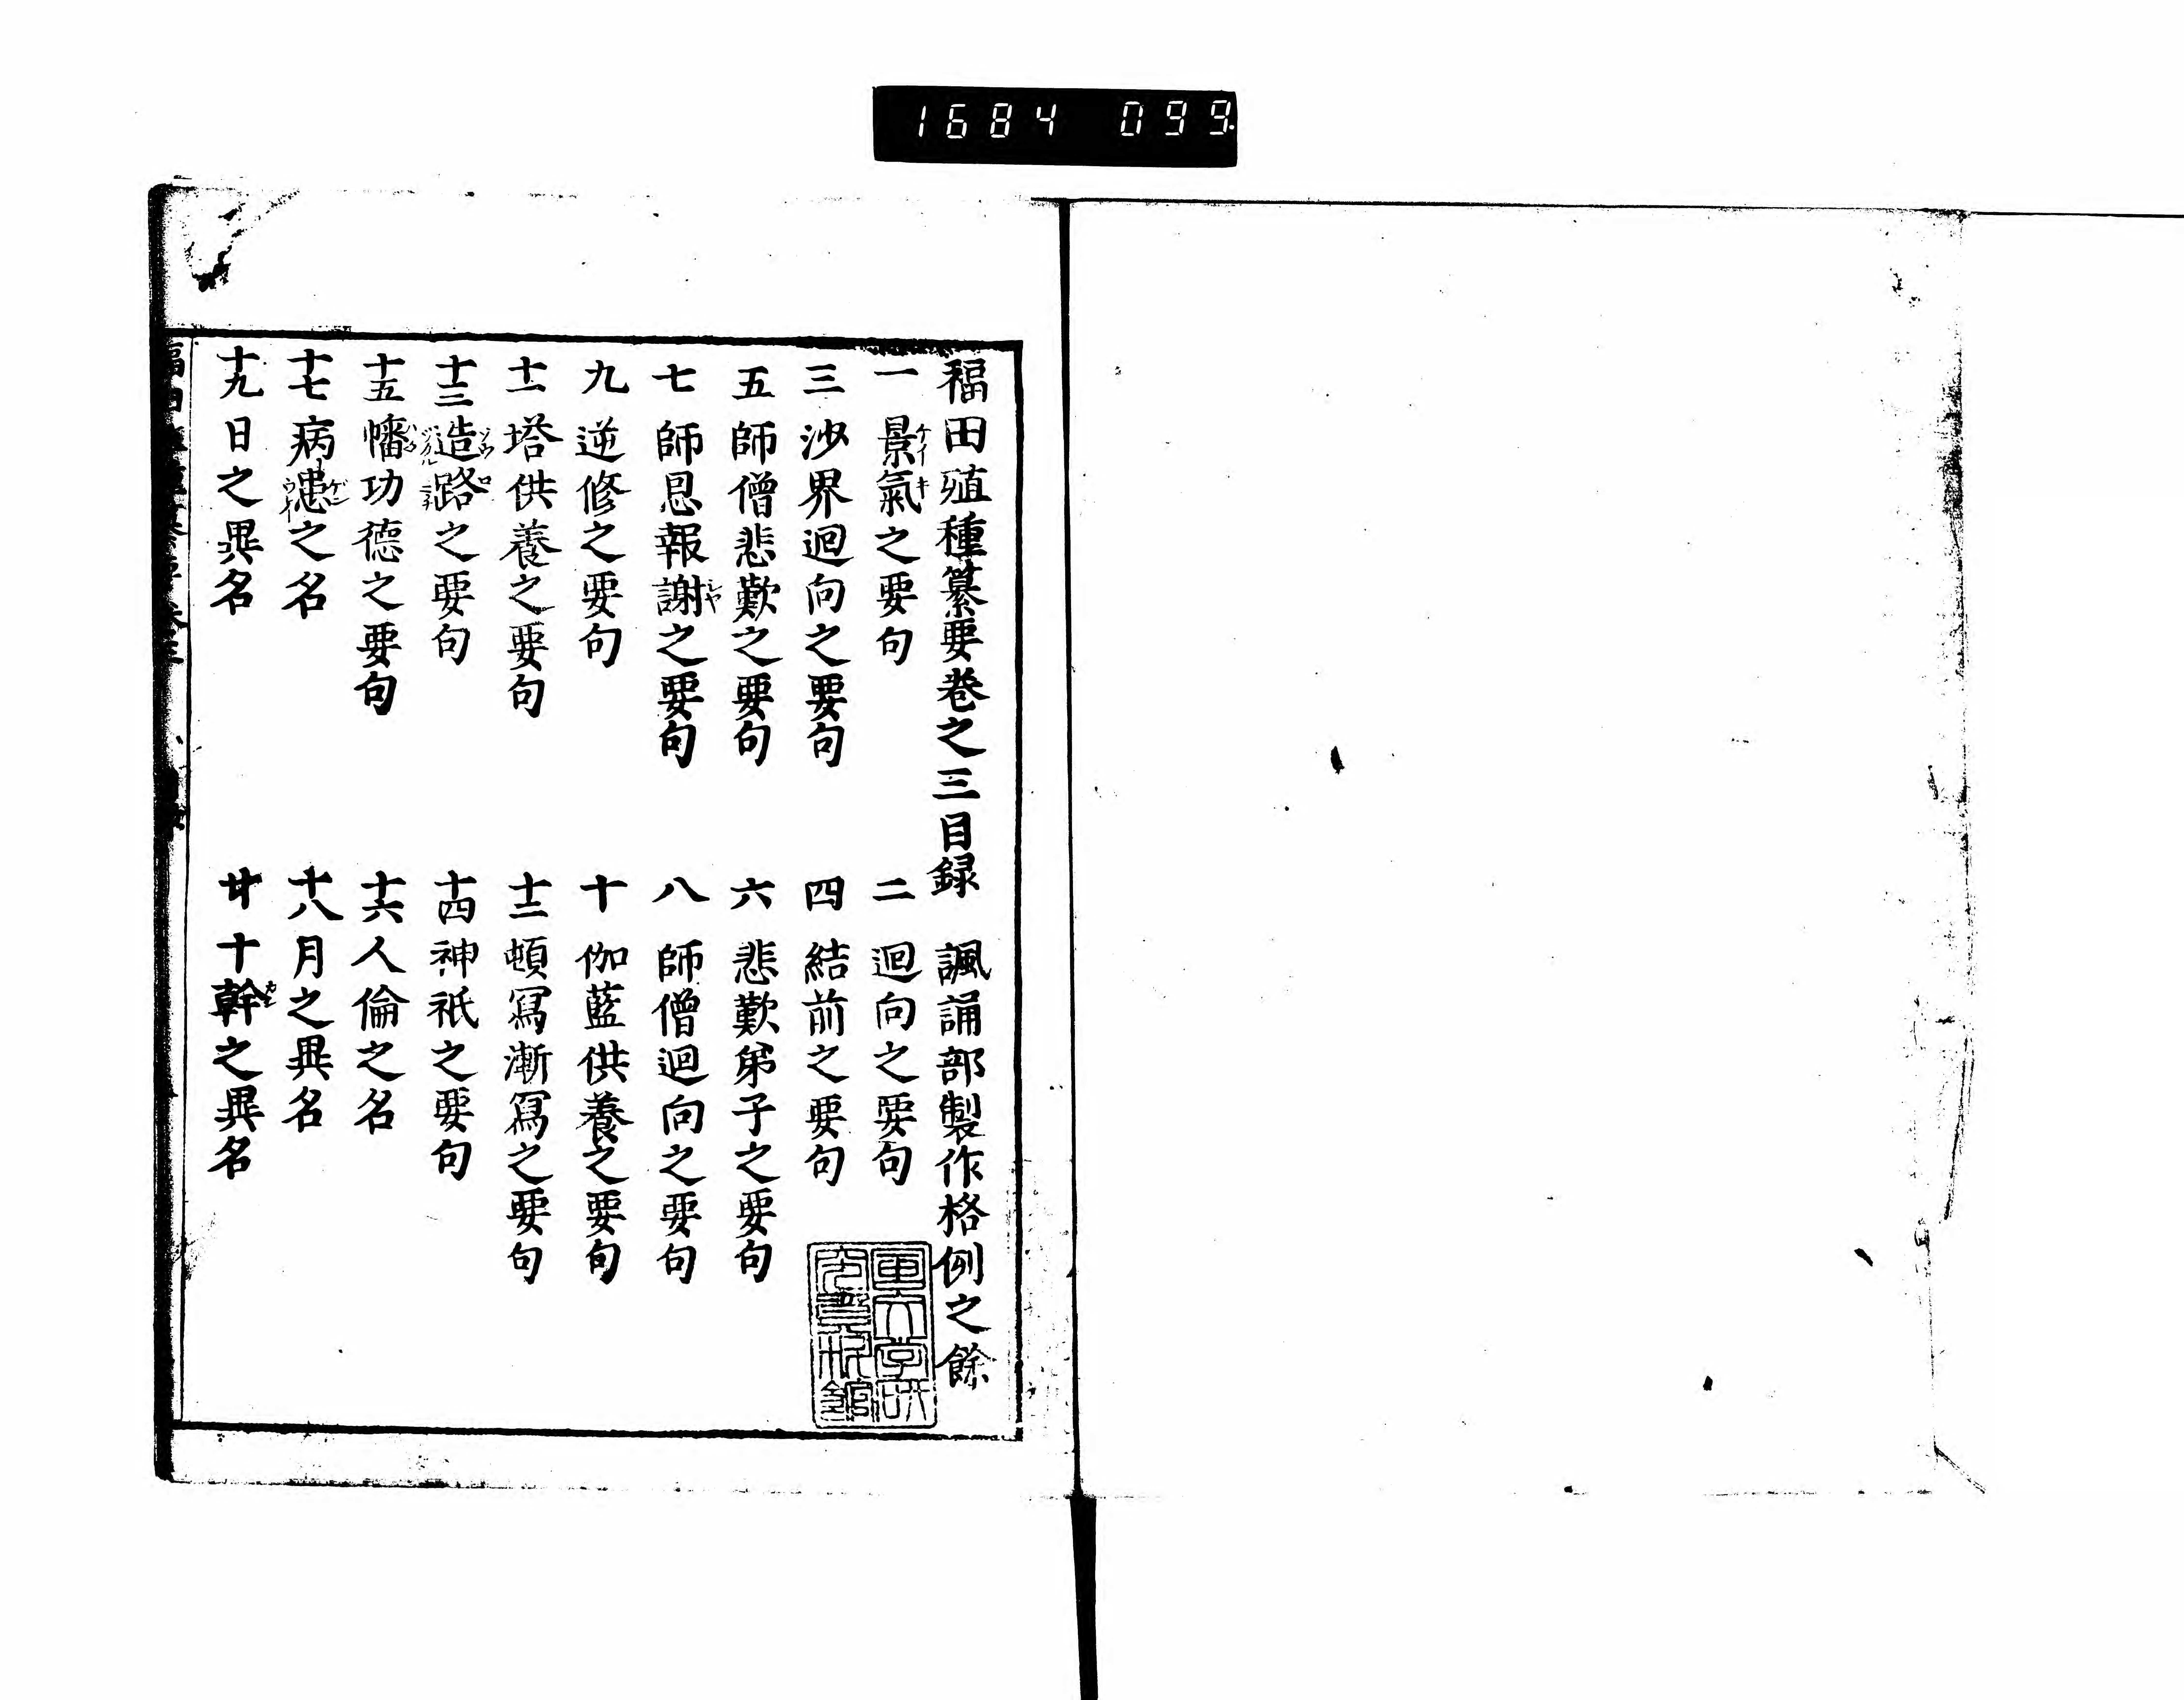 1684 099
福田殖種纂要巻之三目録 諷誦部製作格例之餘
一 景氣之要句 二 迴向之要句
三 沙界迴向之要句 四 結前之要句
五 師僧悲歎之要句 六 悲歎弟子之要句
七 師恩報謝之要句 八 師僧迴向之要句
九 逆修之要句 十 伽藍供養之要句
十一 塔供養之要句 十二 頓冩漸冩之要句
十三 造路之要句 十四 神祇之要句
十五 幡功德之要句 十六 人倫之名
十七 病患之名 十八 月之異名
十九 日之異名 廿 十幹之異名